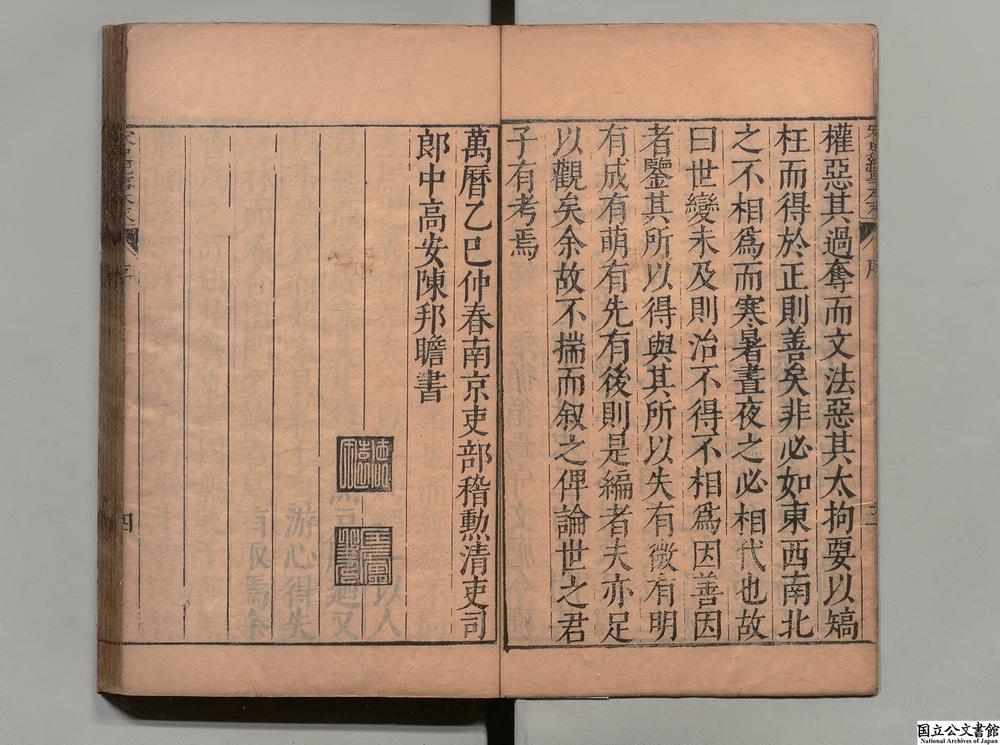 權惡其過奪而文法惡其太拘要以矯
枉而得於正則善矣非必如東西南北
之不相爲而寒暑晝夜之必相代也故
曰世變未及則治不得不相爲因善因
者鑒其所以得與其所以失有微有明
有成有萌有先有後則是編者夫亦足
以觀矣余故不揣而叙之俾論世之君
子有考焉
萬曆乙巳仲春南京吏部稽勲清吏司
郎中高安陳邦瞻書
序
三
序
四
国立公文書館
National Archives of Japan